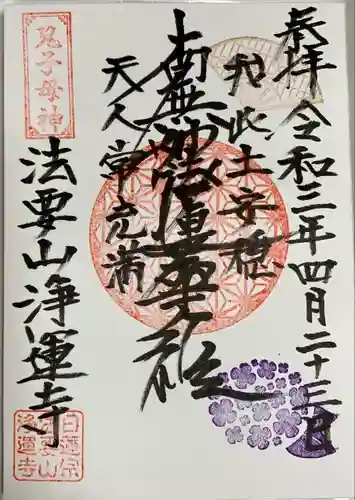 奉拝
令和三年四月二十三日
我此土安穏
南無妙法蓮華経
天人常充満
鬼子母神
法要山浄運寺
日蓮宗
法要山
浄運寺